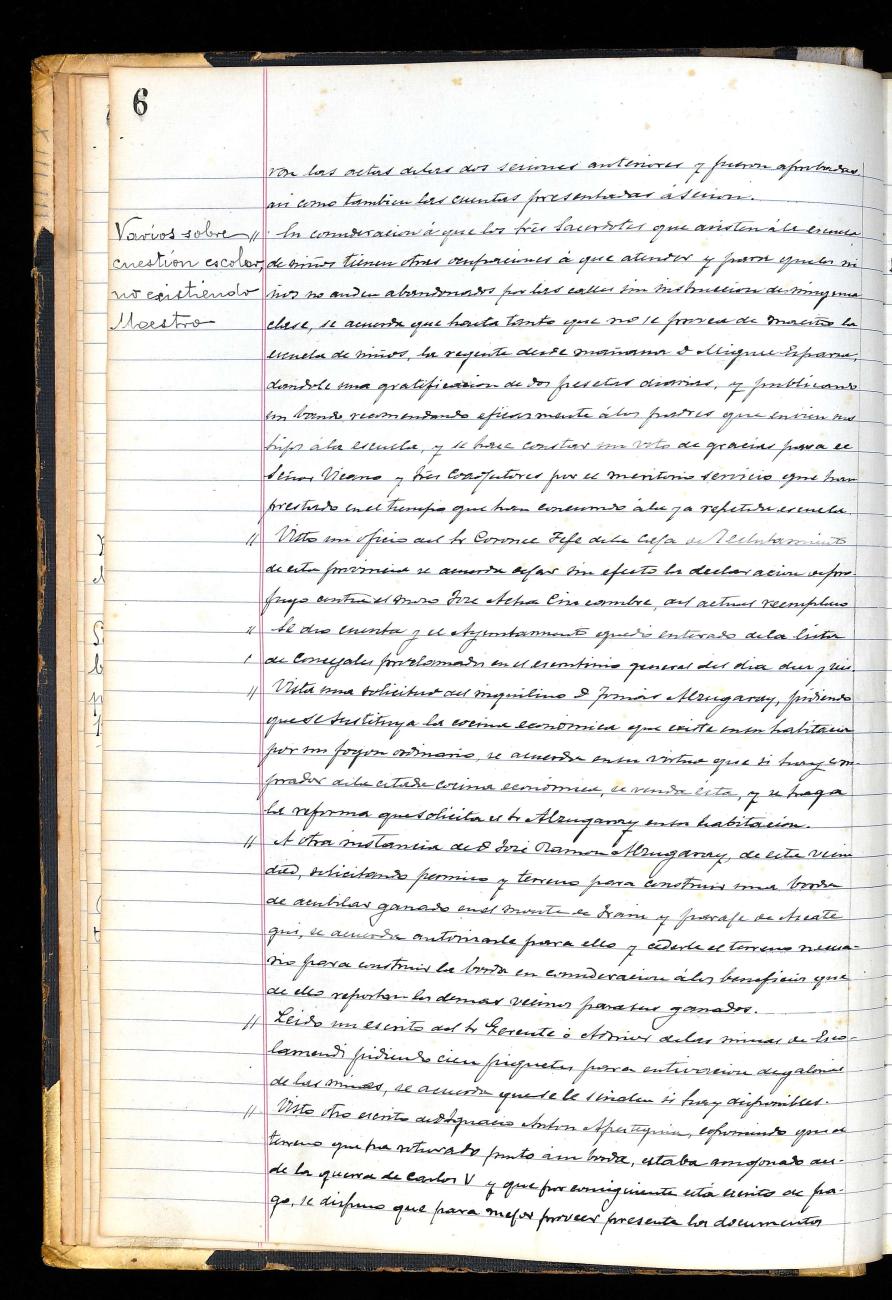 6
ron las actas delas dos sesiones anteriores y fueron aprobadas
asi como tambien las cuentas presentadas á sesion.
Varios sobre
cuestión escolar,
no existiendo
Maestro
" En consideracion á que los tres Sacerdotes que asisten á la escuela
de niños tienen otras ocupaciones á que atender y para que los ni
ños no anden abandonados por las calles sin instruccion de ninguna
clase, se acuerda que hasta tanto que no se provea de maestro la
escuela de niños, la regente desde mañana D Miguel Esparza,
dandole una gratificacion de dos pesetas diarias, y publicando
un bando recomendando eficazmente álos padres que envien sus
hijos ála escuela, y se hace constar un voto de gracias para el
Señor Vicario y tres Coadjutores por el meritorio servicio que han
prestado en el tiempo que han concurrido ála ya repetida escuela.
" Visto un oficio del Sr Coronel Jefe dela Caja de Reclutamiento
de esta provincia se acuerda dejar sin efecto la declaracion de pro-
fugo contra el mozo José Acha, del actual reemplazo
" Se dio cuenta y el Ayuntamiento quedó enterado dela lista
de Concejales proclamados en el escrutinio general del dia diez y seis.
" Vista una solicitud del inquilino D Tomás Alzugaray, pidiendo
que se sustituya la cocina económica que existe en su habitacion
por un fogon ordinario, se acuerda en su virtud que si hay com-
prador dela citada cocina económica, se venda ésta, y se haga
la reforma que solicita el Sr Alzugaray en su habitacion.
" A otra instancia de D José Ramon Alzugaray, de esta vecin
dad, solicitando permiso y terreno para construir una borda
de acubilar ganado en el monte de y paraje de
se acuerda autorizarle para ello y cederle el terreno necesa-
rio para construir la borda en consideracion álos beneficios que
de ello reportan los demas vecinos para sus ganados.
" Leido un escrito del Sr Gerente ó Admior delas minas de Esco-
lamendi pidiendo cien piquetes para entivacion de galerias
de las minas, se acuerda que se le señalen si hay disponibles.
" Visto otro escrito de D Ignacio Anton Apesteguia, exponiendo que el
terreno que ha roturado junto á su borda, estaba amojonado des-
de la guerra de Carlos V y que por consiguiente esta esento de pa-
go, se dispuso que para mejor proveer presente los documentos